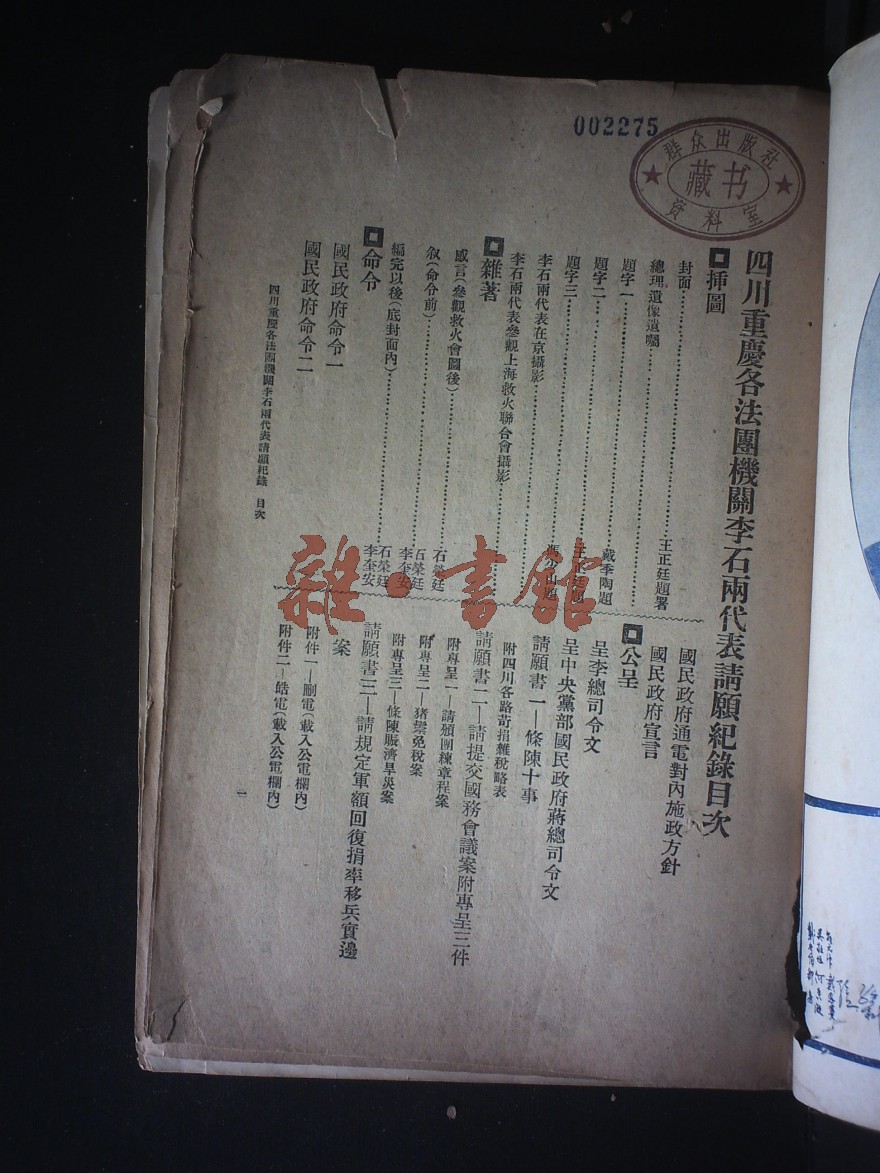 002275
群众出版社
藏书
资料室
四川重慶各法團機關李石兩代表請願紀錄目次
插圖
封面……王正廷題署
總理遺像遺囑
題字一……戴季陶題
題字二……王正廷題
題字三……馮少山題
李石兩代表在京攝影
李石兩代表參觀上海救火聯合會攝影
雜著
感言(參觀救火會圖後)……石榮廷
叙(命令前)……石榮廷 李奎安
編完以後(底封面內)……石榮廷 李奎安
命令
國民政府命令一
國民政府命令二
國民政府通電對內施政方針
國民政府宣言
公呈
呈李總司令文
呈中央黨部國民政府蔣總司令文
請願書一—條陳十事
附四川各路苛捐雜稅略表
請願書二—請提交國務會議案附專呈三件
附專呈一—請頒團練章程案
附專呈二—猪鬃免稅案
附專呈三—條陳賑濟旱災案
請願書三—請規定軍額回復捐率移兵實邊
案
附件一—刪電(載入公電欄內)
附件二—皓電(載入公電欄內)
四川重慶各法團機關李石兩代表請願紀錄 目次
一
雜·書館